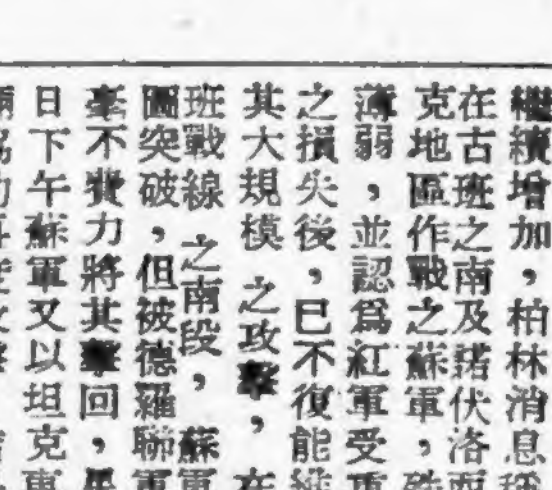 繼續增加,柏林消息稱
在古班之南及諾伏洛西
克地區作戰之蘇軍,殊
薄弱,並認爲紅軍受重
之損失後,已不復能維
其大規模之攻擊,在
班戰線,之南段,蘇軍
圖突破,但被德羅聯軍
毫不費力將其擊回,
日下午蘇軍又以坦克